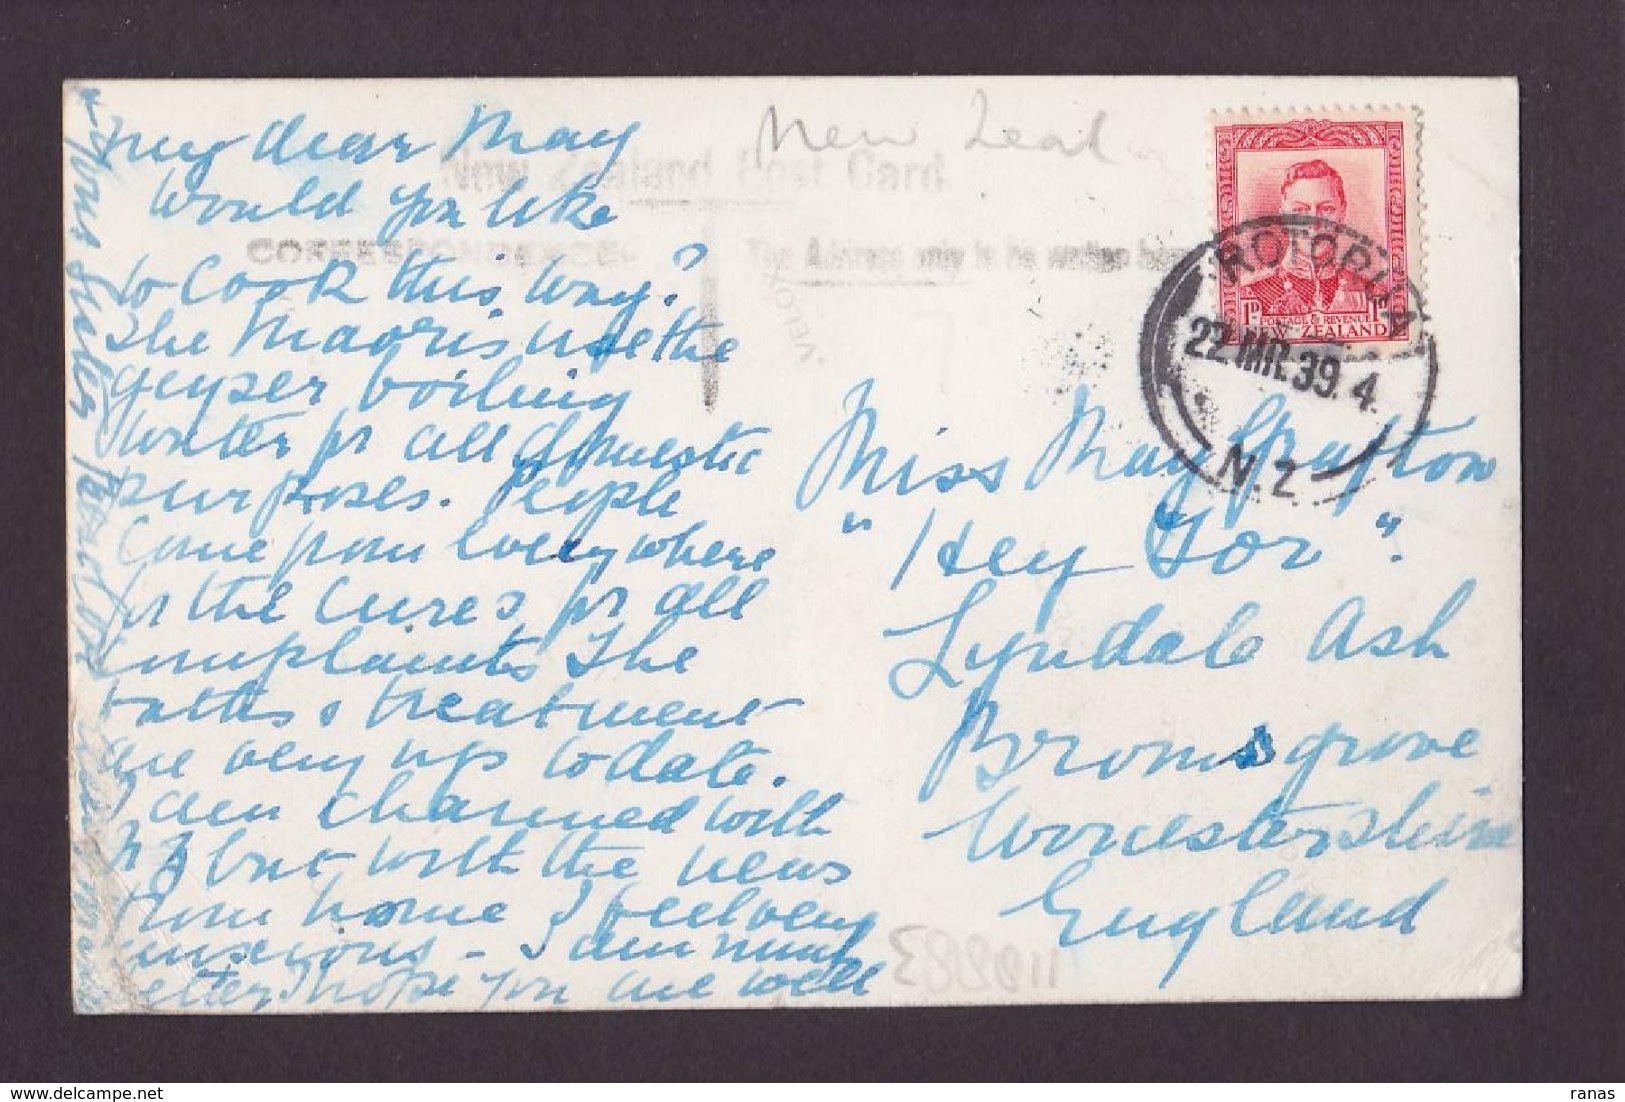 My dear May
Would you like
to Cook this way?
The Maoris use the
geyser boiling
water for all domestic
purposes. People
Come from Everywhere
for the Cures for all
Complaints The
baths & treatment
are very up to date.
I am charmed with
N Z but with the news
from home I feel very
anxious - I am much
better, I hope you are well
Yours Sincerely
New Zealand Post Card
CORRESPONDENCE
The Address only to be written here
VELOX
New Zeal
Miss May Grafton
"Hey Tor".
Lyndale Ash
Bromsgrove
Worcestershire
England
1D POSTAGE & REVENUE 1D
NEW ZEALAND
ROTORUA
22 MR. 39. 4.
N.Z
118883
delcampe.net
ranas